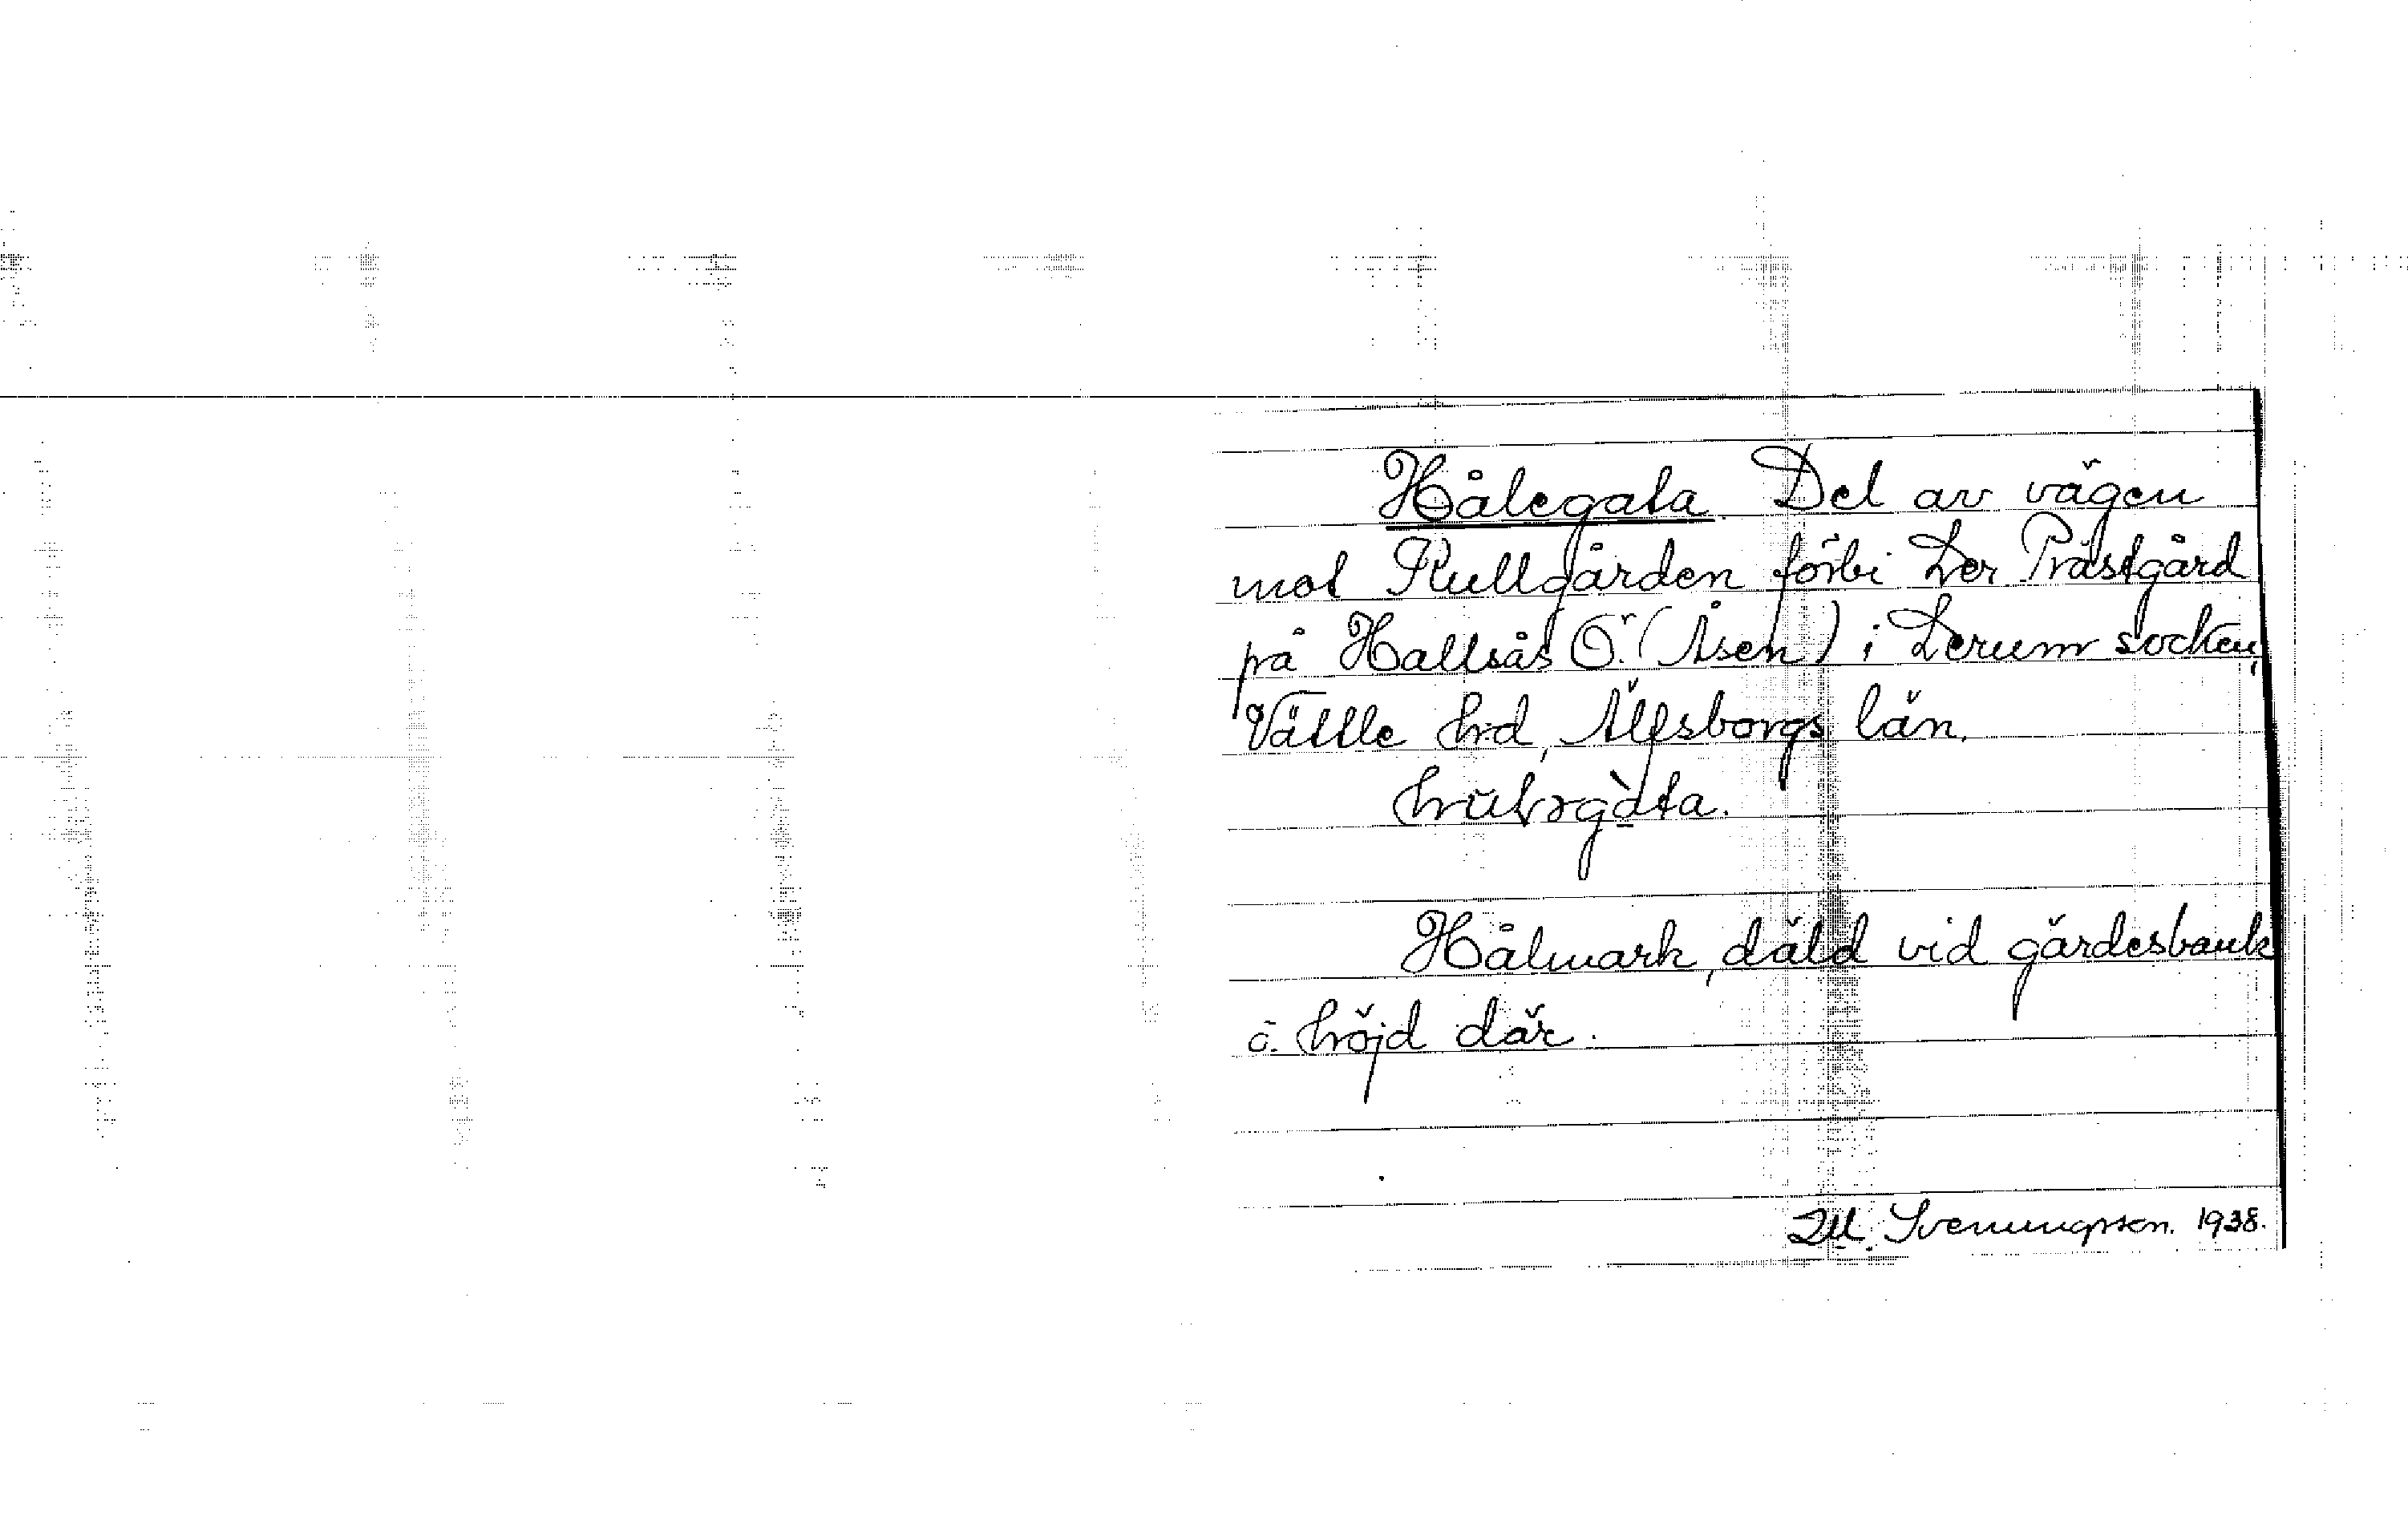 Hålegata. Del av vägen
mot Kullgården förbi Ler Prästgård
på Hallsås Ö. (Åsen) i Lerum socken,
Vättle hrd, Älfsborgs län.
Hålmark, däld vid gärdesbank
o. höjd där.
Sveningsson. 1938.